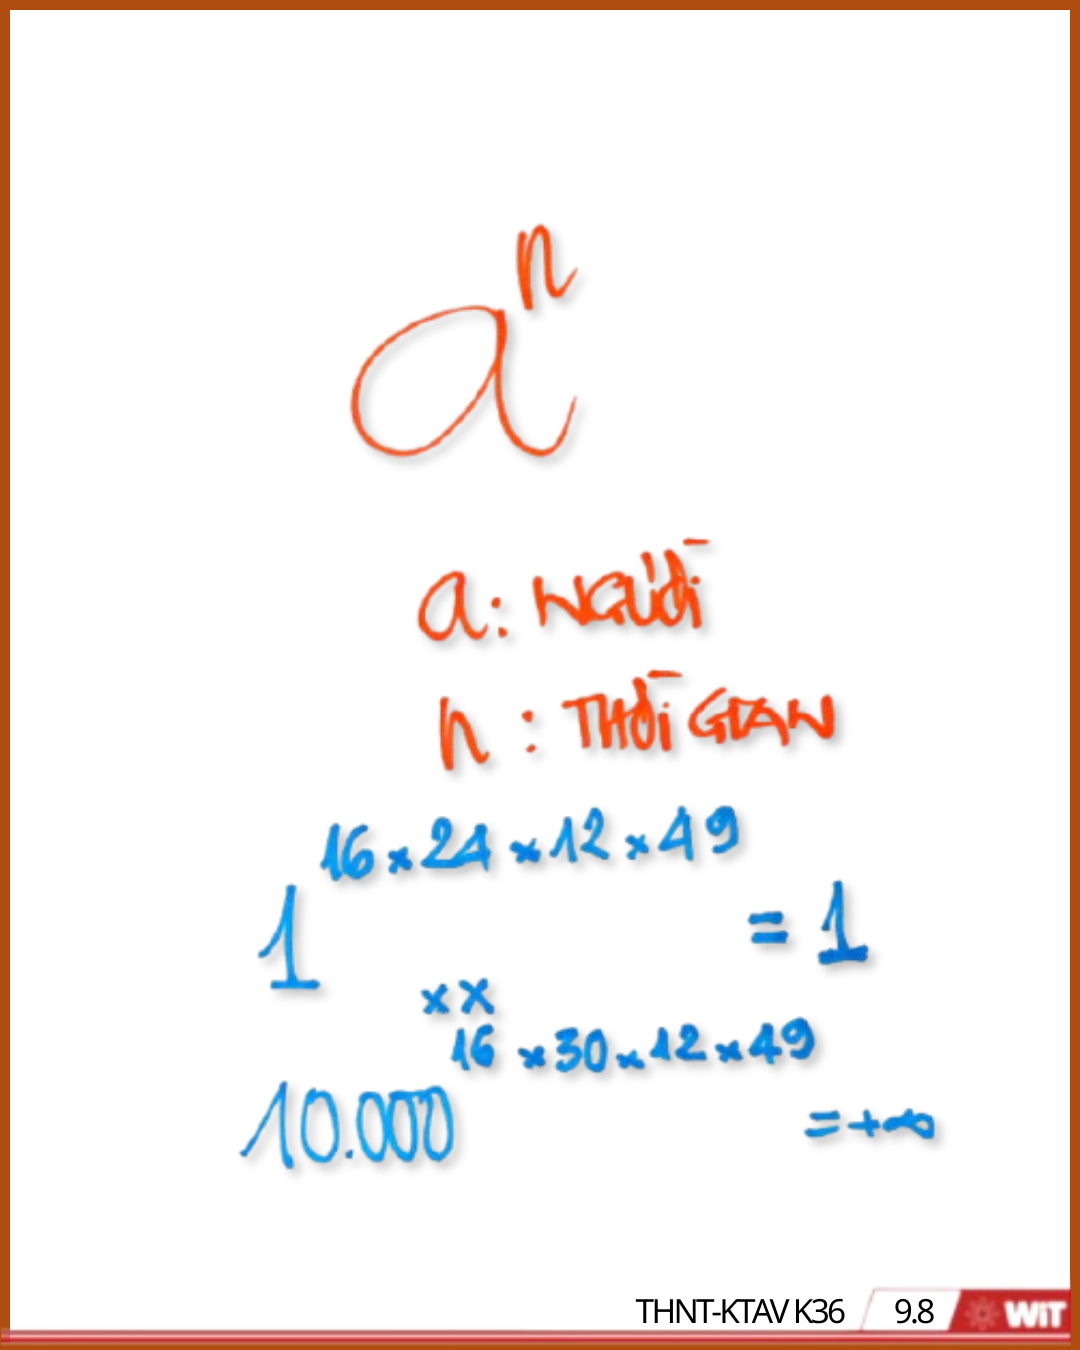 aⁿ
a: NGƯỜI
n: THỜI GIAN
1^16 x 24 x 12 x 49 = 1
x x
10.000^16 x 30 x 12 x 49 = +∞
THNT-KTAV K36 9.8 WiT